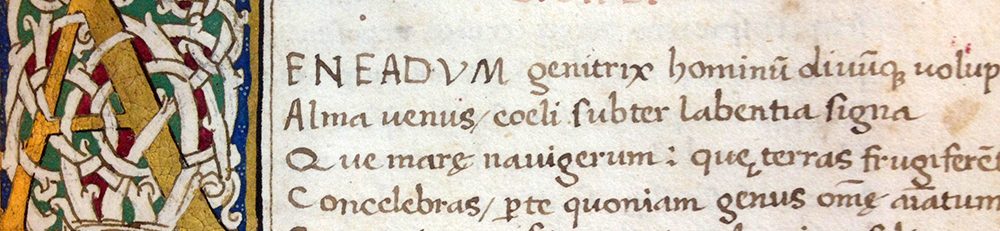 AENEADVM genitrix hominū diuūq; uolup
Alma uenus/ coeli subter labentia signa
Que marę nauigerum: quę terras frugiferē
Concelebras/ ꝑte quoniam genus omē aīatum